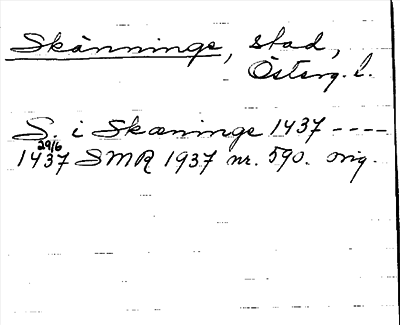 Skänninge, stad,
Österg. l.
S. i Skæninge 1437 ----
29/6
1437 SMR 1937 nr. 590. orig.